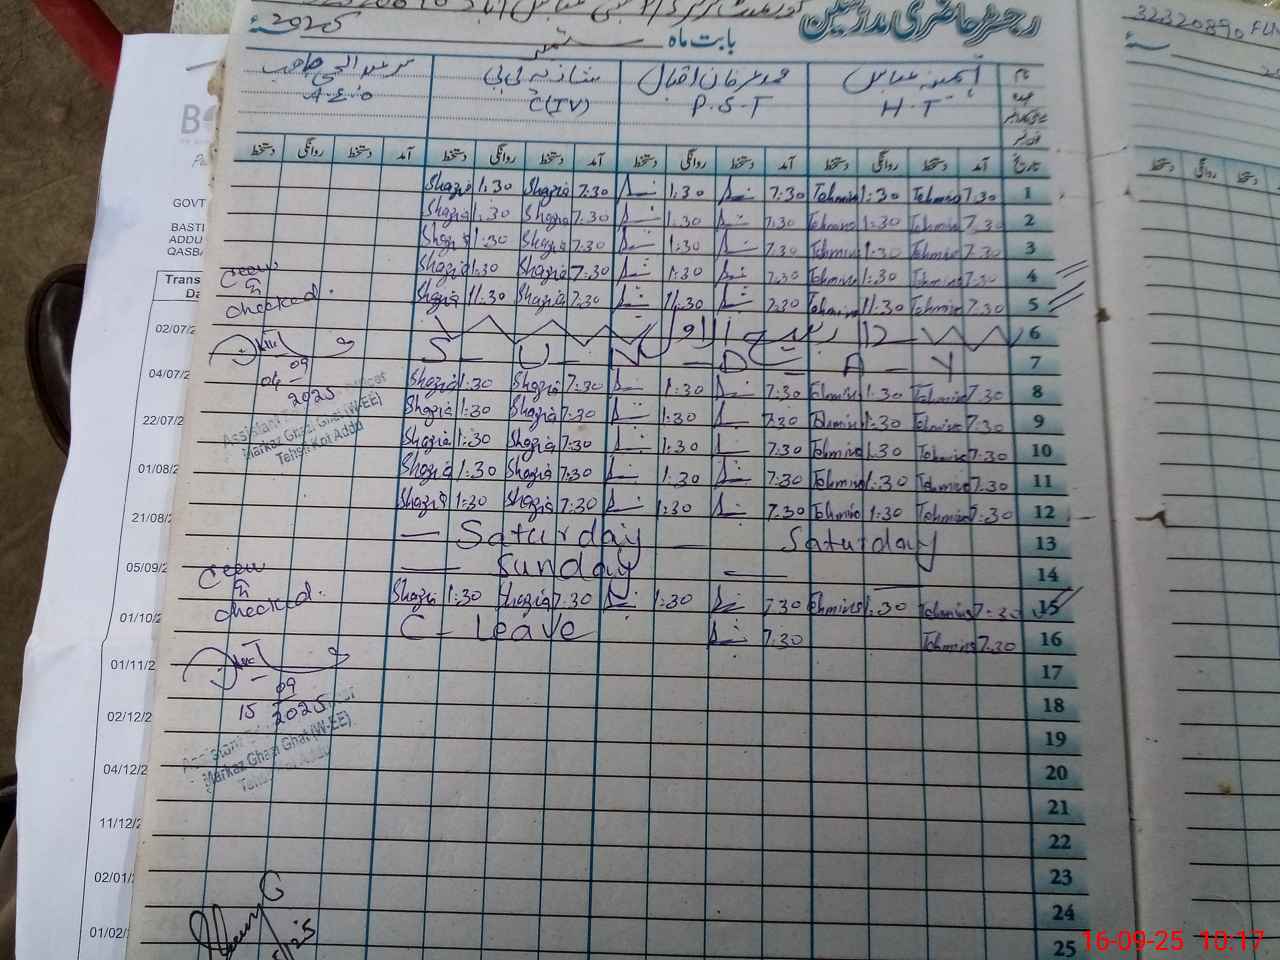 رجسٹر حاضری مدرسین
32320890
بابت ماہ ستمبر 2025
محمد عرفان اقبال
شازیہ بی بی
H.T
P.S.T
C(IV)
A.E.O
تاریخ آمد دستخط روانگی دستخط آمد دستخط روانگی دستخط آمد دستخط روانگی دستخط آمد دستخط روانگی دستخط
1 7:30 Tehmina 1:30 Tehmina 7:30 1:30 7:30 Shazia 1:30 Shazia
2 7:30 Tehmina 1:30 Tehmina 7:30 1:30 7:30 Shazia 1:30 Shazia
3 7:30 Tehmina 1:30 Tehmina 7:30 1:30 7:30 Shazia 1:30 Shazia
4 7:30 Tehmina 1:30 Tehmina 7:30 1:30 7:30 Shazia 1:30 Shazia
5 7:30 Tehmina 11:30 Tehmina 7:30 11:30 7:30 Shazia 11:30 Shazia
6 12 ربیع الاول
7 S - U - N - D - A - Y
8 7:30 Tehmina 1:30 Tehmina 7:30 1:30 7:30 Shazia 1:30 Shazia
9 7:30 Tehmina 1:30 Tehmina 7:30 1:30 7:30 Shazia 1:30 Shazia
10 7:30 Tehmina 1:30 Tehmina 7:30 1:30 7:30 Shazia 1:30 Shazia
11 7:30 Tehmina 1:30 Tehmina 7:30 1:30 7:30 Shazia 1:30 Shazia
12 7:30 Tehmina 1:30 Tehmina 7:30 1:30 7:30 Shazia 1:30 Shazia
13 — Saturday — Saturday
14 — Sunday —
15 7:30 Tehmina 1:30 Tehmina 7:30 1:30 7:30 Shazia 1:30 Shazia
16 7:30 Tehmina 7:30 C - Leave
17
18
19
20
21
22
23
24
25
Seen
&
checked.
04 - 09
2025
Markaz Ghazi Ghat (W-EE)
Tehsil Kot Addu
Seen
&
checked.
15 - 09
2025
Markaz Ghazi Ghat (W-EE)
Tehsil Kot Addu
GOVT
BASTI
ADDU
QASBA
Trans
Da
02/07
04/07
22/07/2
01/08/
21/08/
05/09/
01/10/
01/11/2
02/12/
04/12/
11/12/
02/01/
01/02/
32320890
دستخط روانگی دستخط
16-09-25 10:17